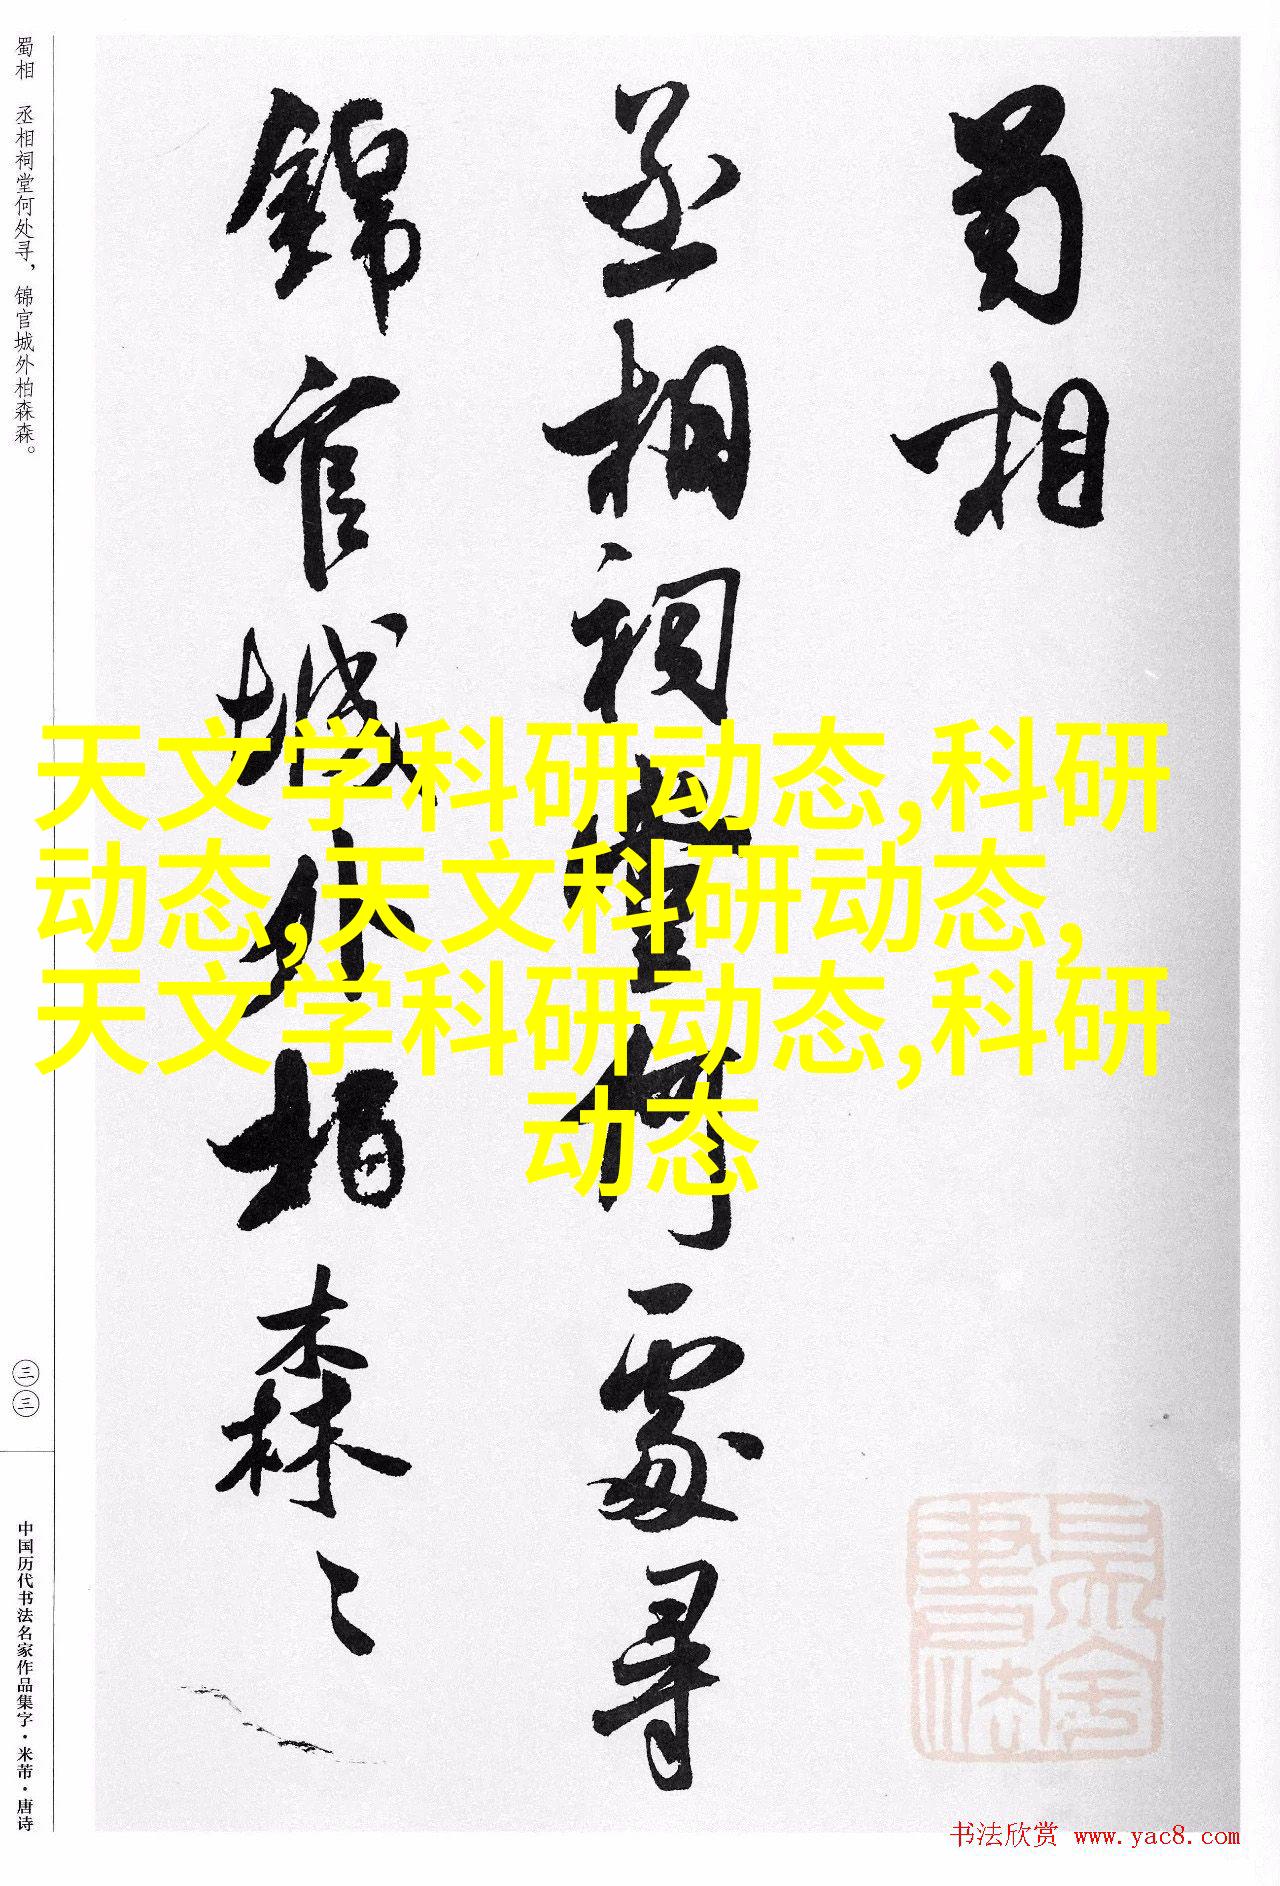 蜀相
丞相祠堂何處尋
錦官城外柏森〻
蜀相 丞相祠堂何处寻，锦官城外柏森森。
三三
中国历代书法名家作品集字·米芾·唐诗
天文学科研动态,科研
动态,天文科研动态,
天文学科研动态,科研
动态
书法欣赏 www.yac8.com